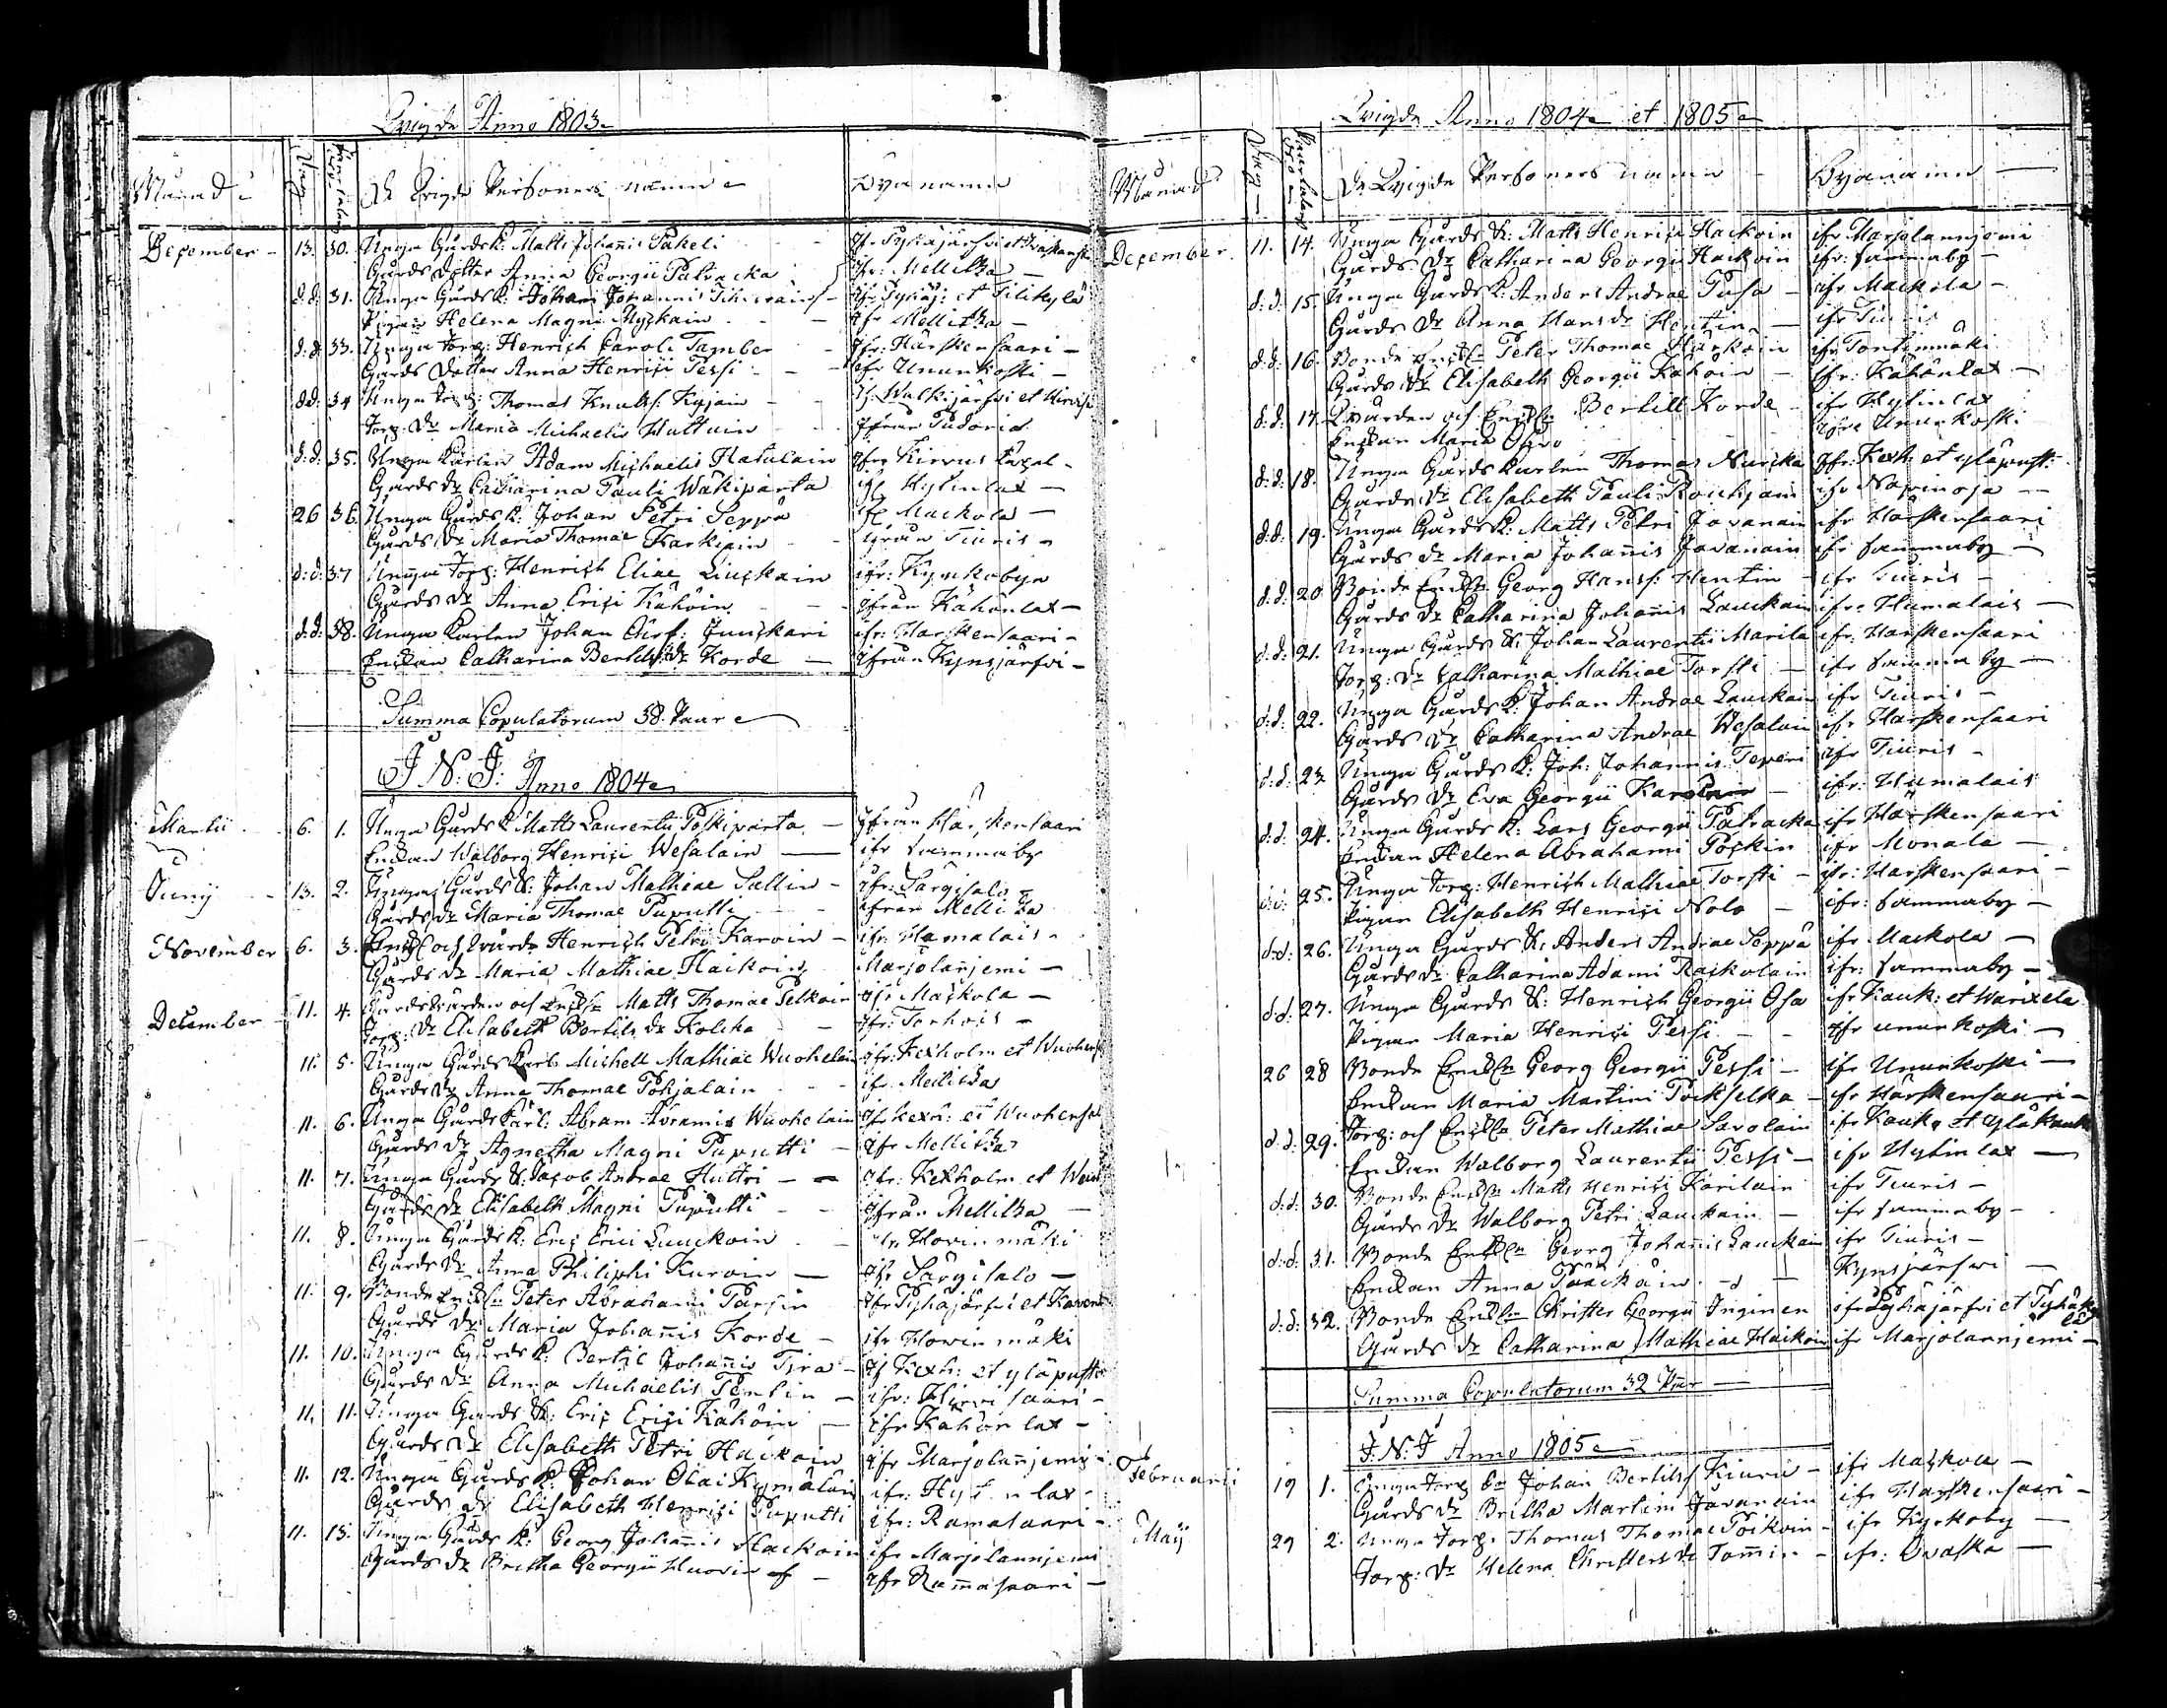 Wigde Anno 1803
Månad
Dag
De Wigde Personers namn
Byanamn
December 13. 30. Unga Gårds K: Matts Johannis Pakeli
Gårds Dotter Anna Georgii Patracka ifr: Mellitza
d:d: 31. Unga Gårds K: Johan Johannis
Pigan Helena Magni Myckain ifr Mellitza
d:d: 33. Unga Torp: Henrich Caroli Tamber ifr: Harskensaari
Gårds Dotter Anna Henrici Pessi ifr Ununkoski
d:d: 34 Unga Torp: Thomas Knutss: Kyjain
Torp: Dr Maria Michaelis Huttuin ifrån Pudoria
d:d: 35. Unga Karlen Adam Michaelis Hatulain
Gårds Dr Catharina Pauli Wäkiparta ifr Hytinlax
26 36. Unga Gårds K: Johan Petri Seppä ifr Mackola
Gårds Dr Maria Thomae Karkiain ifrån Tiuris
d:d: 37 Unga Torp: Henrich Eliae Liuckain ifr: Kyrkobyn
Gårds Dr Anna Erici Kähöin ifrån Kähönlax
d:d: 38. Unga Karlen Johan Junskari ifr: Harskensaari
Enckan Catharina Bertils Dr Korde ifrån Kynsjärfvi
Summa Copulatorum 38. Paar
J N: J: Anno 1804
Martii 6. 1. Unga Gårds K Matts Laurentii Poskiparta ifrån Harskensaari
Enckan Walborg Henrici Wesalain ifr Sammaby
Junij 13. 2. Unga Gårds K: Johan Mathiae Sallin ifr: Särgisalo
Gårds Dr Maria Thomae Puputti ifrån Mellitza
November 6. 3. Enckl: och Henrich Petri Karoin ifr: Hamalais
Gårds Dr Maria Mathiae Haikoin Marjolanjemi
December 11. 4. Gårdsvärden och Enckl: Matts Thomae Pelkoin ifr Mackola
Torp: Dr Elisabeth Bertils Dr Kolcka
11. 5. Unga Gårds Karl: Michell Mathiae Wuohelain ifr: Kexholm et
Gårds Dr Anna Thomae Pohjalain ifr Mellitza
11. 6. Unga Gårds Karl: Abram Abramis Wuohelain ifr Kexh: et Wuohensal
Gårds Dr Agnetha Magni Puputti ifr Mellitza
11. 7. Unga Gårds K: Jacob Andrae Huttri ifr: Kexholm et
Gårds Dr Elisabeth Magni Puputti ifrån Mellitza
11. 8. Unga Gårds K: Eric Erici Lauckoin ifr Howinmäki
Gårds Dr Anna Philiphi Kurvin ifr Särgisalo
11. 9. Bonde Enckl: Peter Abrahami Parsin ifr Pyhäjärfvi et
Gårds Dr Maria Johannis Korde ifr Howinmäki
11. 10. Unga Gårds K: Bertil Johannis ifr Kexh: et yläpusti
Gårds Dr Anna Michaelis Pentin ifr: Hirvisaari
11. 11. Unga Gårds K: Eric Erici Kähöin ifr Kähönlax
Gårds Dr Elisabeth Petri Hackoin ifr Marjolanjemi
11. 12. Unga Gårds K: Johan Olai Kymäläin ifr: Hytinlax
Gårds Dr Elisabeth Henrici Puputti ifr: Ramasaari
11. 13. Unga Gårds K: Georg Johannis Hackoin ifr Marjolannjemi
Gårds Dr Bretha Georgii Huovin ifr Rammasaari
Wigde Anno 1804 et 1805
Månad
Dag
De Wigde Personers namn
Byanamn
December 11. 14. Unga Gårds K: Matts Henrici Hackoin ifr Marjolannjemi
Gårds Dr Catharina Georgii Hackoin ifr: Sammaby
d:d: 15. Unga Gårds K: Anders Andrae Pusa ifr Mackola
Gårds Dr Anna Hans Dr Hentin ifr Tiuris
d:d: 16. Bonde Enckl: Peter Thomae Harkoin ifr Tontinmäki
Gårds Dr Elisabeth Georgii Kähöin ifr: Kähönlax
d:d: 17. Gvärden och Enckl: Bertill Korde ifr Hytinlax
Enckan Maria ifrå Ununkoski
d:d: 18. Unga Gårds karlen Thomas Nurcka ifr: Kexh: et yläpusti
Gårds Dr Elisabeth Pauli ifr Norsinoja
d:d: 19. Unga Gårds K: Matts Petri Javanain ifr Harskensaari
Gårds Dr Maria Johannis Javanain ifr Sammaby
d:d: 20 Bonde Enckl: Georg Hanss: Hentin ifr Tiuris
Gårds Dr Catharina Johannis Lauckain ifr: Humalais
d:d: 21. Unga Gårds K: Johan Laurentii Marila ifr: Harskensaari
Torp: Dr Catharina Mathiae Torsti ifr Sammaby
d:d: 22. Unga Gårds K: Johan Andrae Lauckain ifr Tiuris
Gårds Dr Catharina Andrae Wesalain ifr Harskensaari
d:d: 23 Unga Gårds K: Joh: Johannis Teperi ifr Tiuris
Gårds Dr Eva Georgii ifr: Humalais
d:d: 24. Unga Gårds K: Lars Georgii Patracka ifr Harskensaari
Enckan Helena Abrahami Poskin ifr Monala
d:d: 25. Unga Torp: Henrich Mathiae Torsti ifr: Harskensaari
Pigan Elisabeth Henrici Nolo ifr: Sammaby
d:d: 26. Unga Gårds K: Anders Andrae Seppä ifr Mackola
Gårds Dr: Catharina Adami Rackolain ifr: Sammaby
d:d: 27. Unga Gårds K: Henrich Georgii Osa ifr Kauk: et
Pigan Maria Henrici Pessi ifr ununkoski
26 28 Bonde Enckl: Georg Georgii Pessi ifr Ununkoski
Enckan Maria Martini Pockselka ifr Harskensaari
d:d: 29. Torp: och Enckl: Peter Mathiae Savolain ifr Kauk: et
Enckan Walborg Laurentii Pessi ifr Hytinlax
d:d: 30. Bonde Enckl: Matts Henrici Karilain ifr Tiuris
Gårds Dr Walborg Petri Lauckain ifr Sammaby
d:d: 31. Bonde Enckl: Georg Johannis Lauckain ifr Tiuris
Enckan Anna Kynsjärfwi
d:d: 32. Bonde Enckl: Christer Georgii Inginen ifr Pyhäjärfvi et
Gårds Dr Catharina Mathiae Haikoin ifr Marjolannjemi
Summa Copulatorum 32 Paar
J: N: J Anno 1805
Februarii 19 1. Unga Torp: Johan Bertilss Kiuru ifr Mackola
Gårds Dr Britha Martini Javanain ifr Harskensaari
Maij 29 2. Unga Torp: Thomas Thomae Poikoin ifr Kyrkoby
Torp: Dr Helena Christers Dr Tommin ifr: